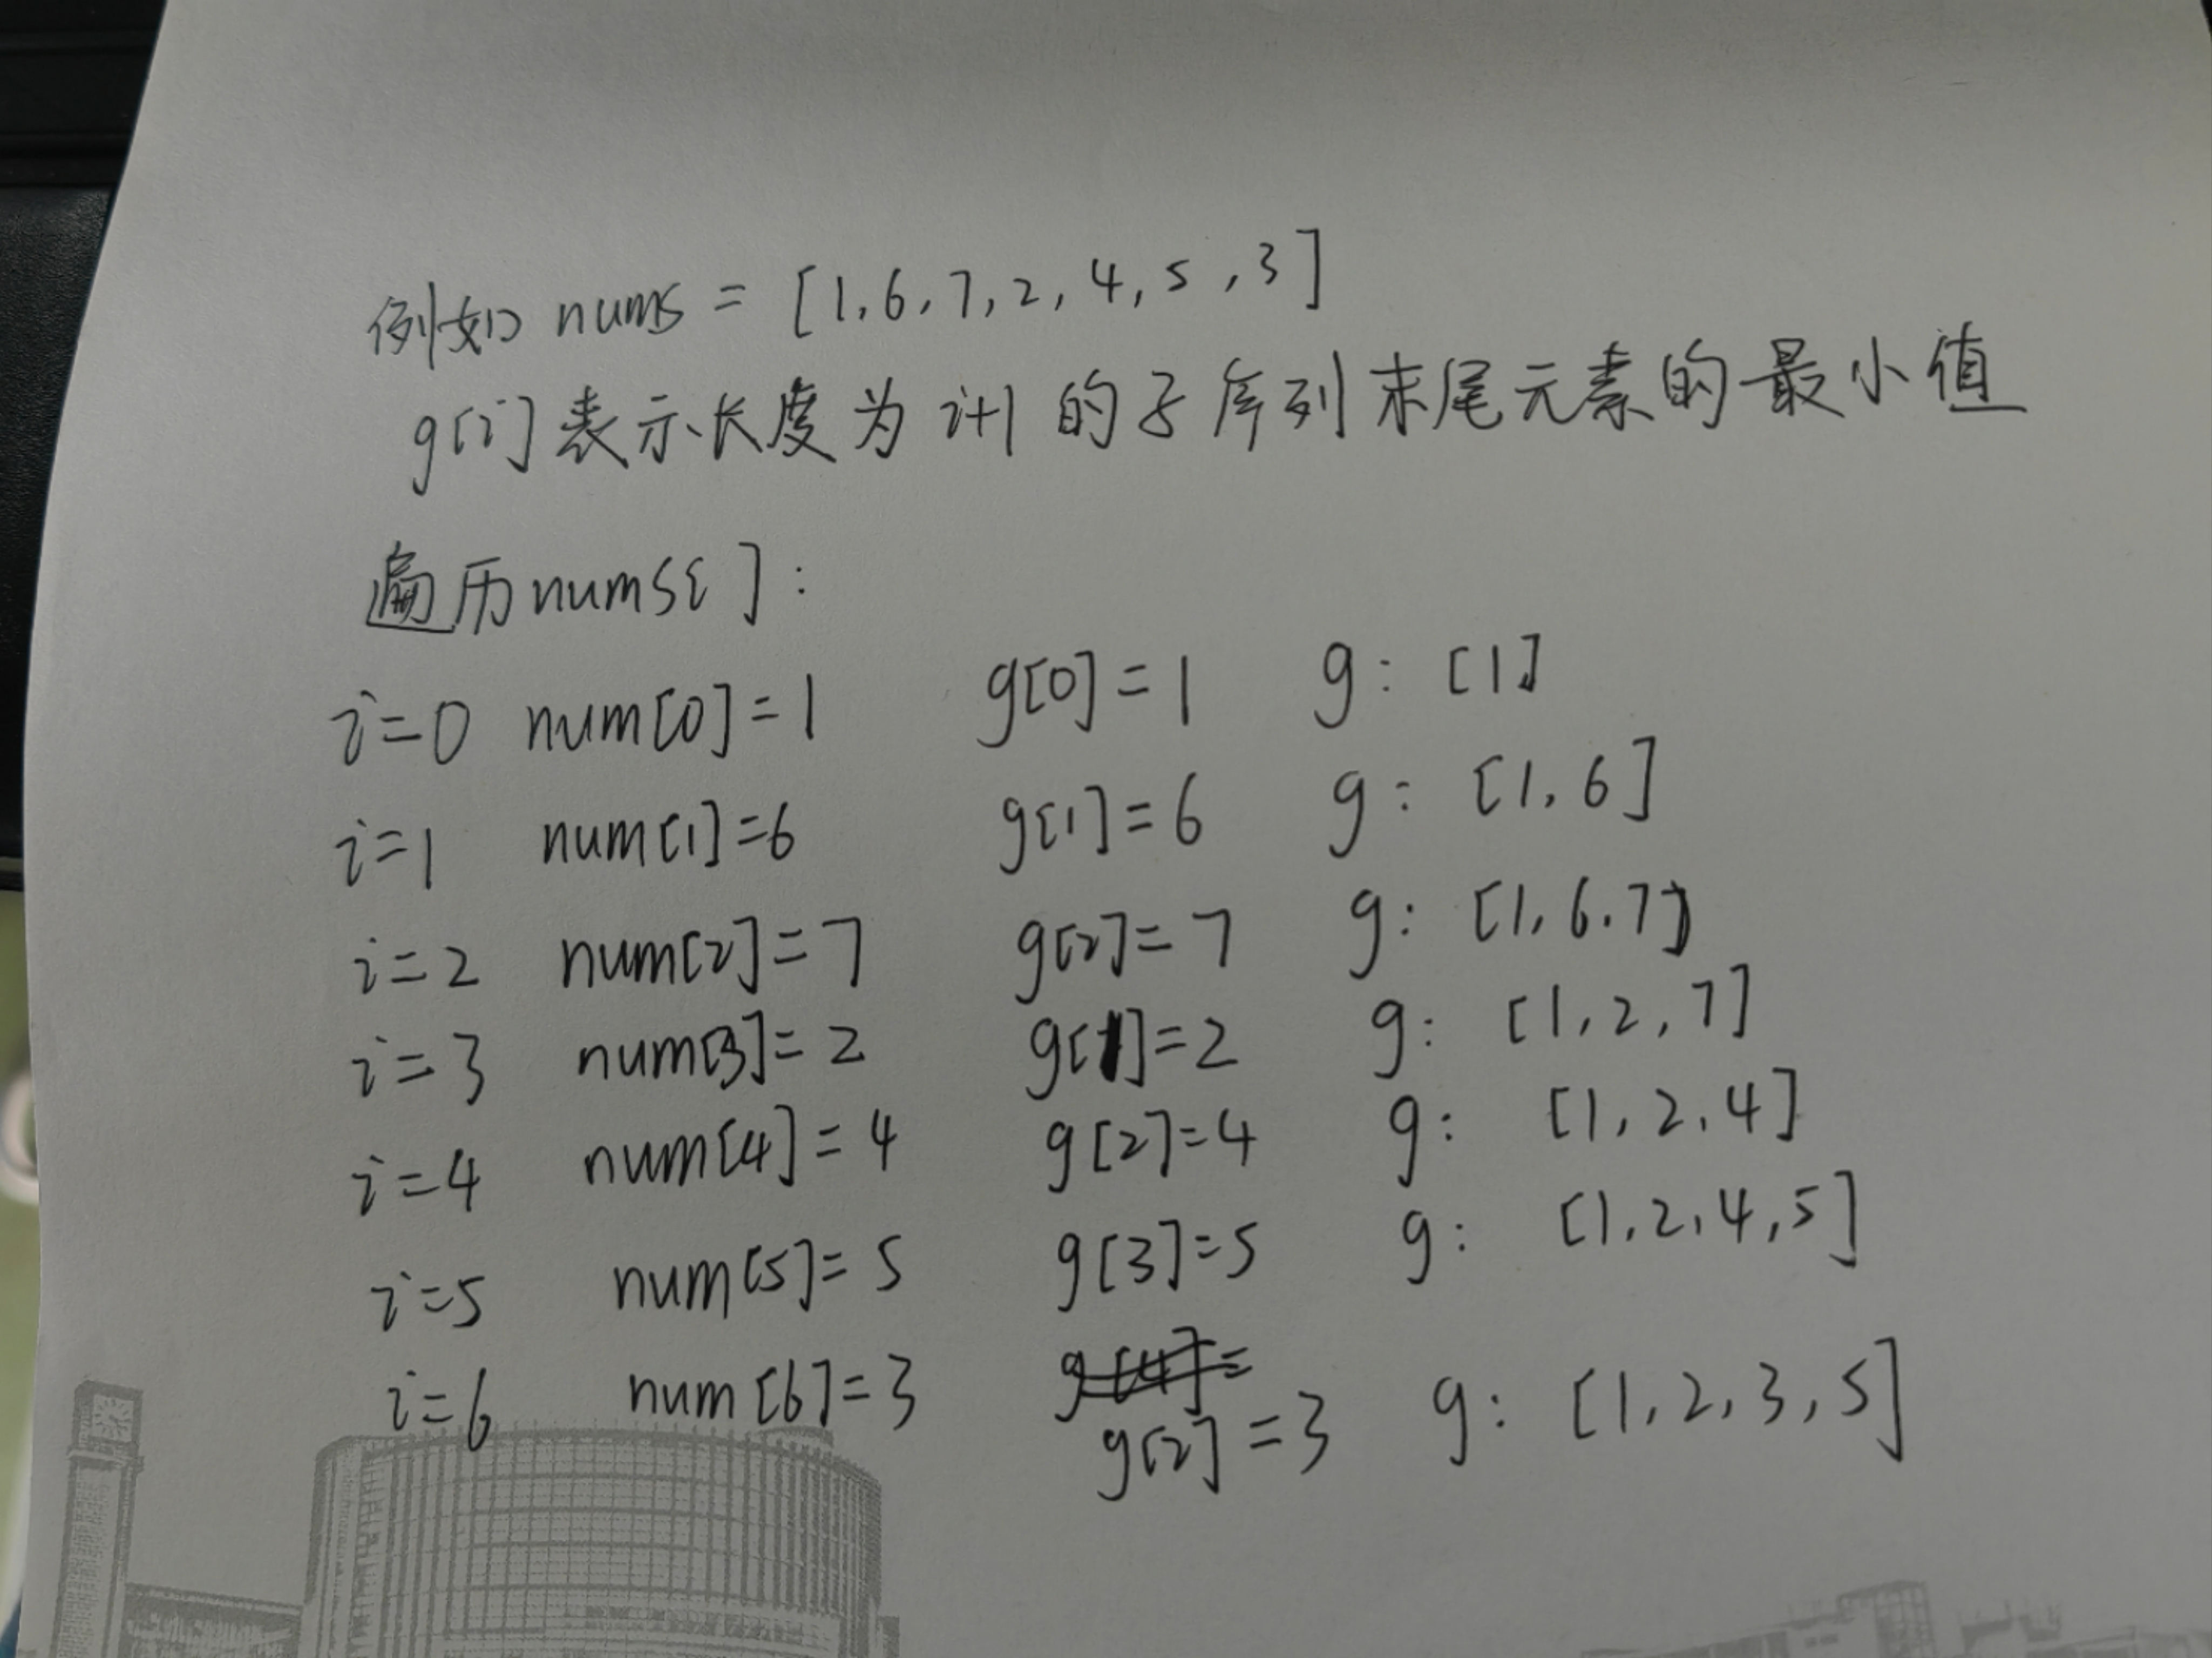 例如 nums = [1,6,7,2,4,5,3]
g[i]表示长度为 i+1 的子序列末尾元素的最小值
遍历nums[]:
i=0 num[0]=1 g[0]=1 g: [1]
i=1 num[1]=6 g[1]=6 g: [1,6]
i=2 num[2]=7 g[2]=7 g: [1,6.7]
i=3 num[3]=2 g[1]=2 g: [1,2,7]
i=4 num[4]=4 g[2]=4 g: [1,2,4]
i=5 num[5]=5 g[3]=5 g: [1,2,4,5]
i=6 num[6]=3 g[4]=
g[2]=3 g: [1,2,3,5]